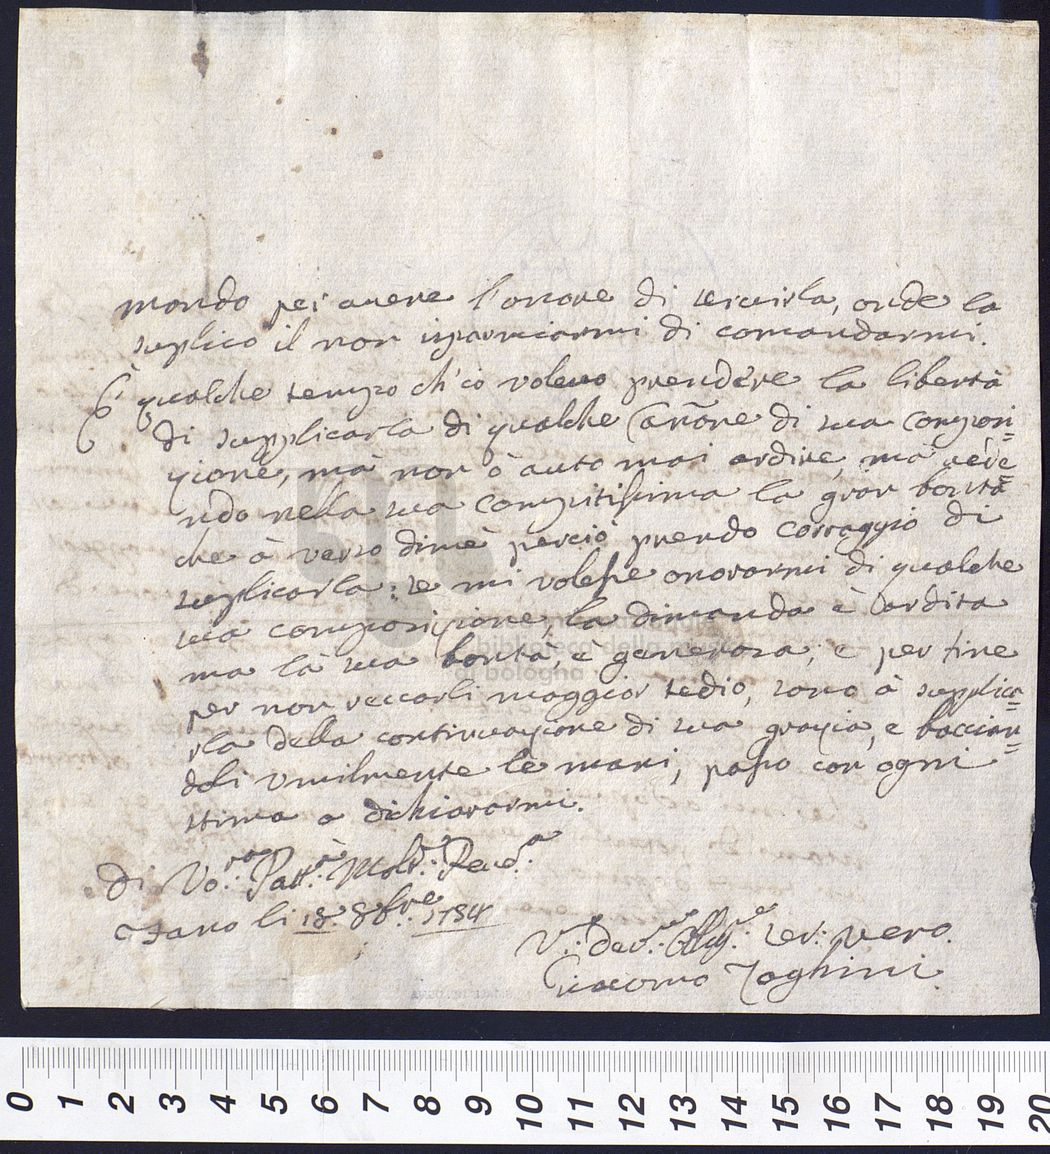 mondo per avere l'onore di servirla, onde la
suplico il non isparmiarmi di comandarmi.
È qualche tempo ch'io volevo prendere la libertà
di supplicarla di qualche Canone di sua composi=
zione, mà non ò auto mai ardire, mà vede
ndo nella sua compitissima la gran bontà
che à verso di mè perciò prendo corraggio di
suplicarla: se mi volesse onorarmi di qualche
sua composizione, la dimanda è ardita
ma la sua bontà, è generosa; e per fine
per non reccarli maggior tedio, sono à supplica=
rla della continuazione di sua grazia, e bacian=
doli umilmente le mani, passo con ogni
stima a dichiararmi.
di Vo:ra Patt:à Molt:o Revd:a
Fano li 18. 8bre 1754
V:a Dev:mo Obbg:mo ser: vero.
Giacomo Zoghini.
biblioteca della
bologna
0 1 2 3 4 5 6 7 8 9 10 11 12 13 14 15 16 17 18 19 20